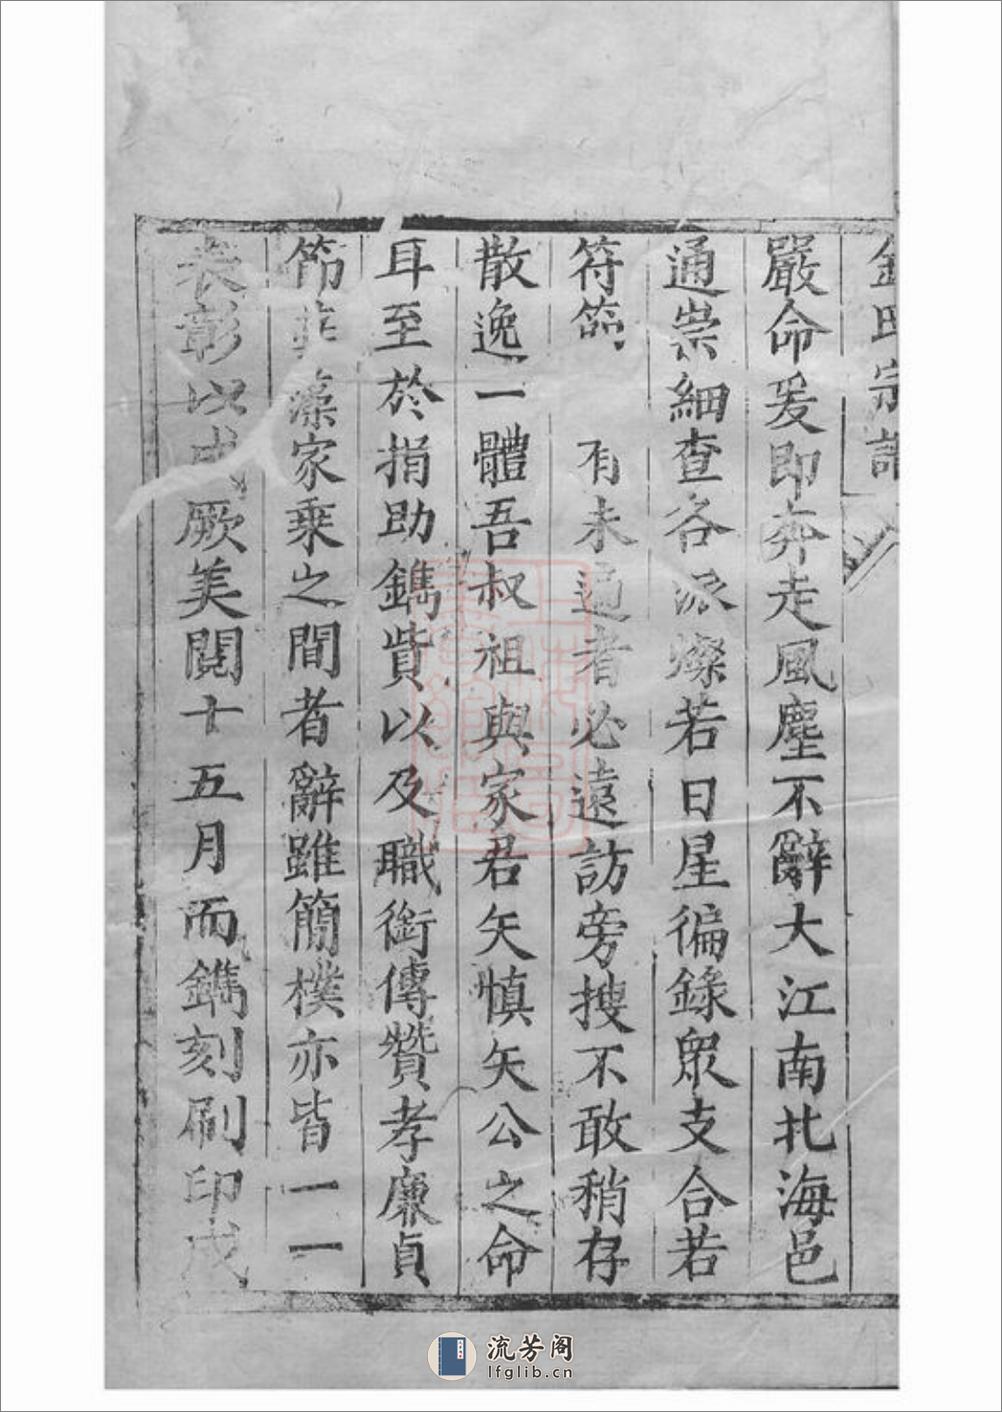 氏宗譜
嚴命爰即奔走風塵不辭大江南北海邑
通崇細查各派燦若日星徧錄眾支合若
符節 有未適者必遠訪旁搜不敢稍存
散逸一體吾叔祖與家君矢慎矢公之命
耳至於捐助鐫貲以及職銜傳贊孝廉貞
節 藻家乘之間者辭雖簡樸亦皆一一
表彰以成厥美閱十五月而鐫刻刷印成
流芳阁
lfglib.cn